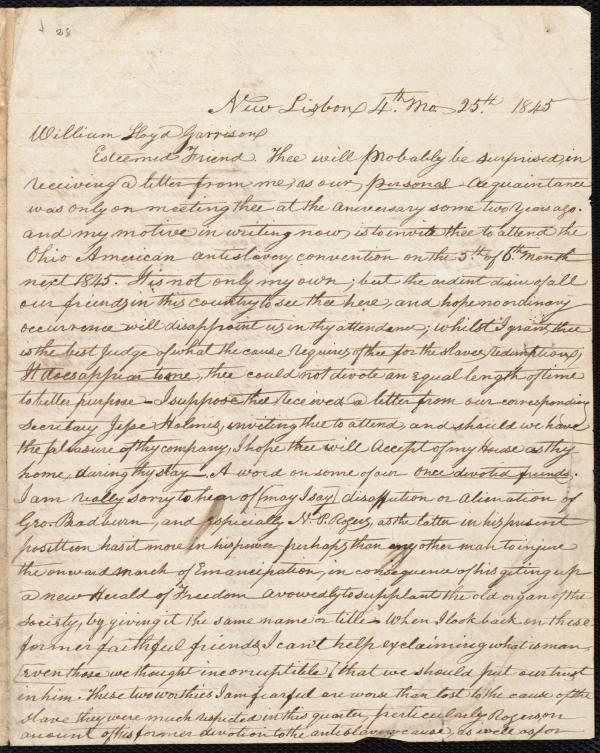 28
New Lisbon 4th. Mo 25th. 1845
William Lloyd Garrison
Esteemed Friend. Thee will probably be surprised in
receiving a letter from me, as our personal acquaintance
was only on meeting thee at the aniversary some two years ago.
and my motive in writing now, is to invite thee to attend the
Ohio American antislavery convention on the 5th of 6th Month
next 1845. It is not only my own; but the ardent desire of all
our friends in this country to see thee here, and hope no ordinary
occurrence will disappoint us in thy attendence; whilst I grant thee
is the best Judge of what the cause requires of thee for the slaves redemption,
It does appear to me, thee could not devote an equal length of time
to better purpose - I suppose thee received a letter from our corresponding
Secretary Jesse Holmes, inviting thee to attend, and should we have
the pleasure of thy company, I hope thee will accept of my House as thy
home, during thy stay - A word on some of our once devoted friends.
I am really sorry to hear of [may I say] disaffection or alienation of
Geo. Bradburn, and especially N. P. Rogers, as the latter in his present
posettion has it more in his power perhaps than any other man to injure
the onward march of Emancipation, in consequence of his giting up
a new Herald of Freedom avowedly to supplant the old organ of the
Society, by giving it the same name or title - When I look back on these
former faithful friends, I can't help exclaiming what is man,
Even those we thought incorruptible (that we should put our trust
in him. These two worthies I am fearful are worse than lost to the cause of the
slave they were much respected in this quarter, perticularly Rogers on
amount of his former devotion to the antislavery cause, as well as for